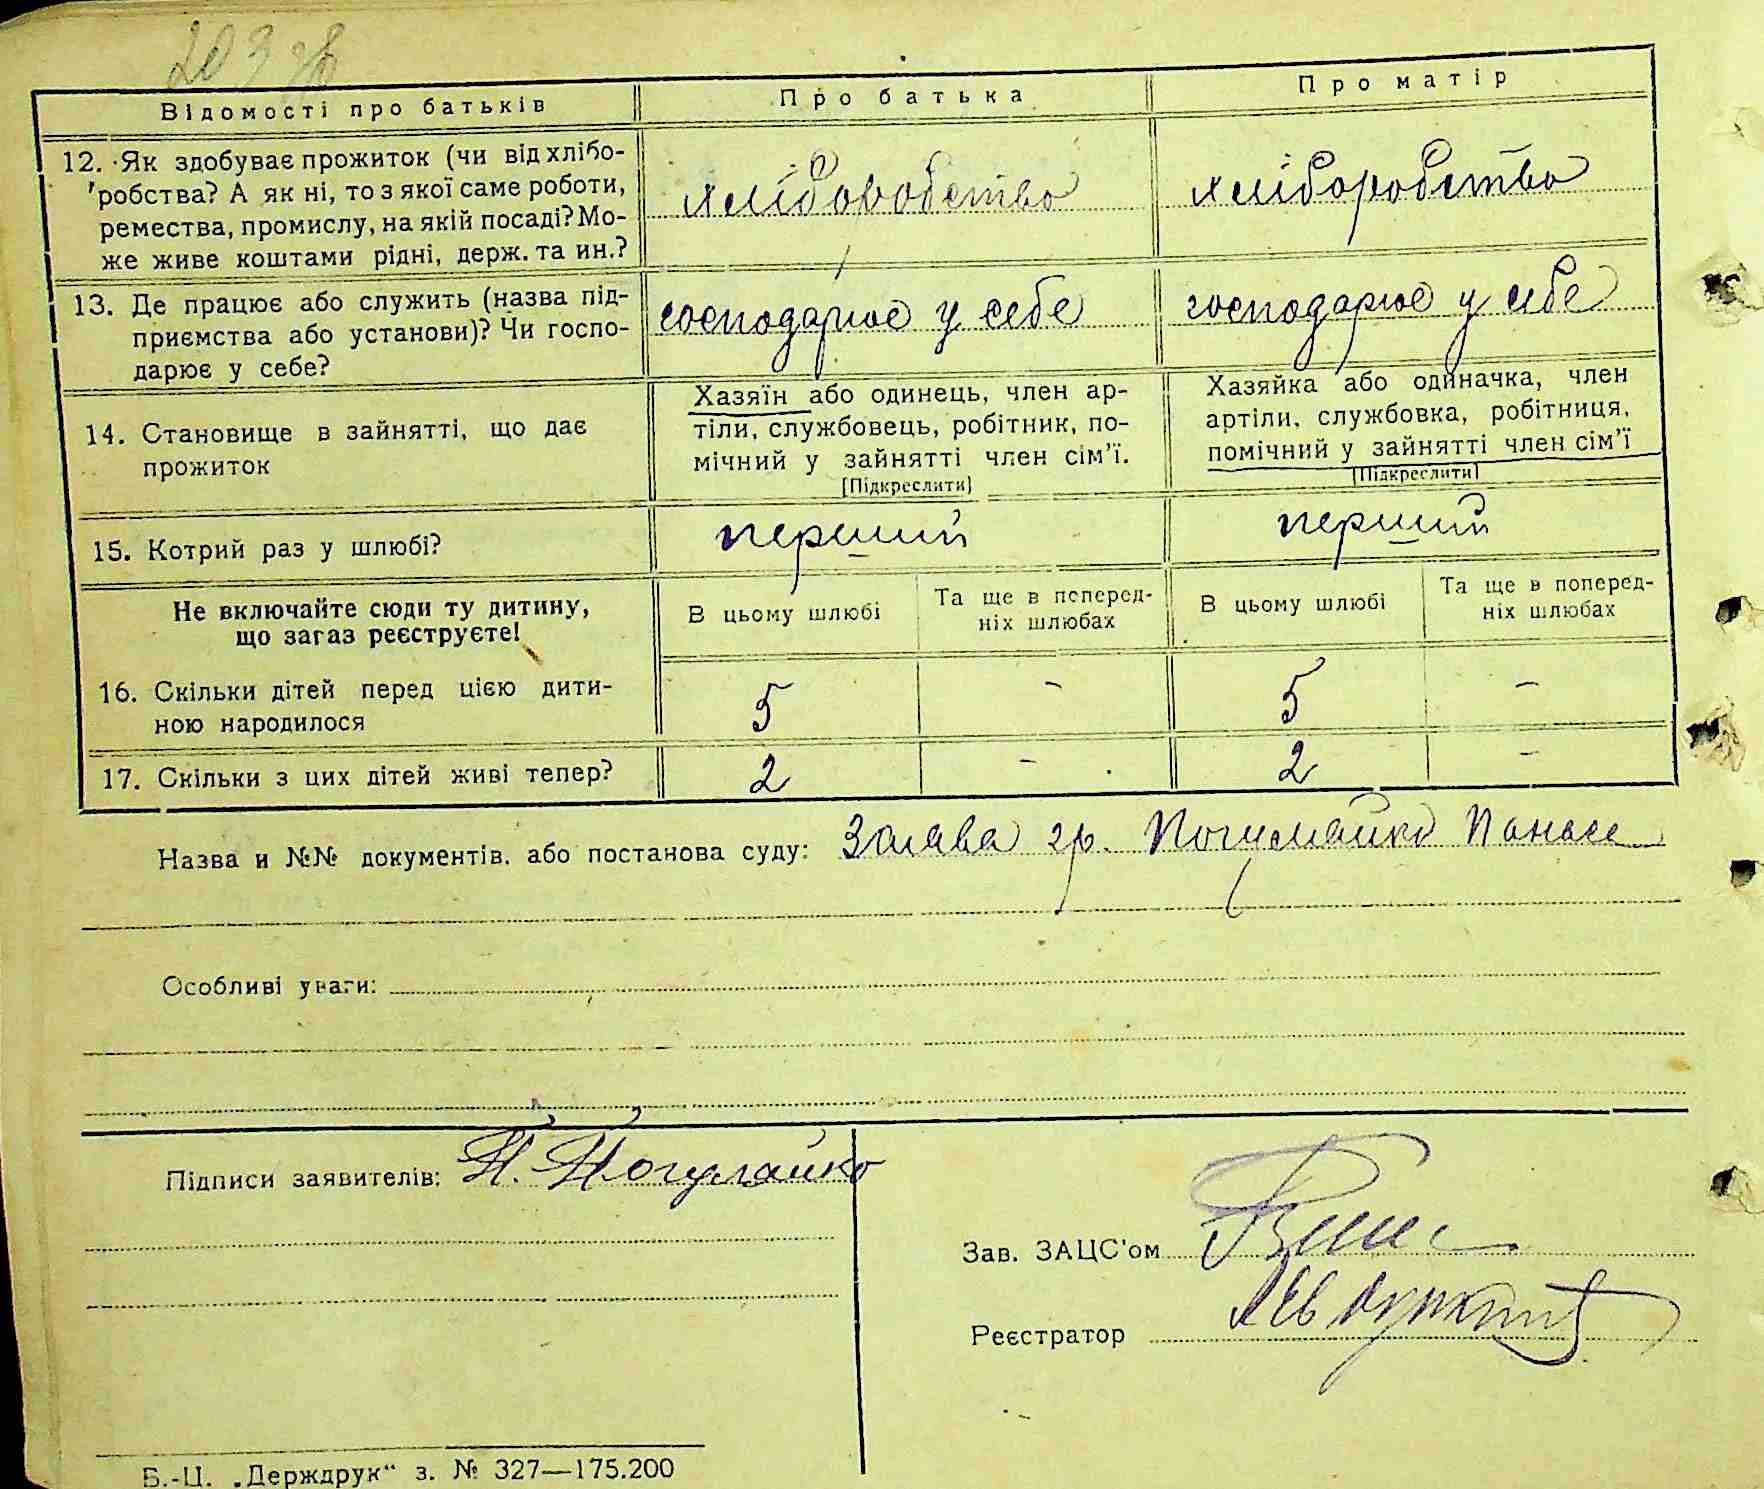 203 зв
Відомості про батьків Про батька Про матір
12. Як здобуває прожиток (чи від хлібо-
робства? А як ні, то з якої саме роботи,
ремества, промислу, на якій посаді? Мо-
же живе коштами рідні, держ. та ин.?
хліборобство хліборобство
13. Де працює або служить (назва під-
приємства або установи)? Чи госпо-
дарює у себе?
господарює у себе господарює у себе
14. Становище в зайнятті, що дає
прожиток
Хазяїн або одинець, член ар-
тіли, службовець, робітник, по-
мічний у зайнятті член сім'ї.
[Підкреслити]
Хазяйка або одиначка, член
артіли, службовка, робітниця,
помічний у зайнятті член сім'ї
[Підкреслити]
15. Котрий раз у шлюбі? перший перший
Не включайте сюди ту дитину,
що загаз реєструєте!
В цьому шлюбі
Та ще в поперед-
ніх шлюбах
В цьому шлюбі
Та ще в поперед-
ніх шлюбах
16. Скільки дітей перед цією дити-
ною народилося
5 - 5 -
17. Скільки з цих дітей живі тепер? 2 - 2 -
Назва и №№ документів. або постанова суду: Заява гр. Панаса
Особливі уваги:
Підписи заявителів:
Зав. ЗАЦС'ом
Реєстратор
Б.-Ц. „Держдрук“ з. № 327—175.200